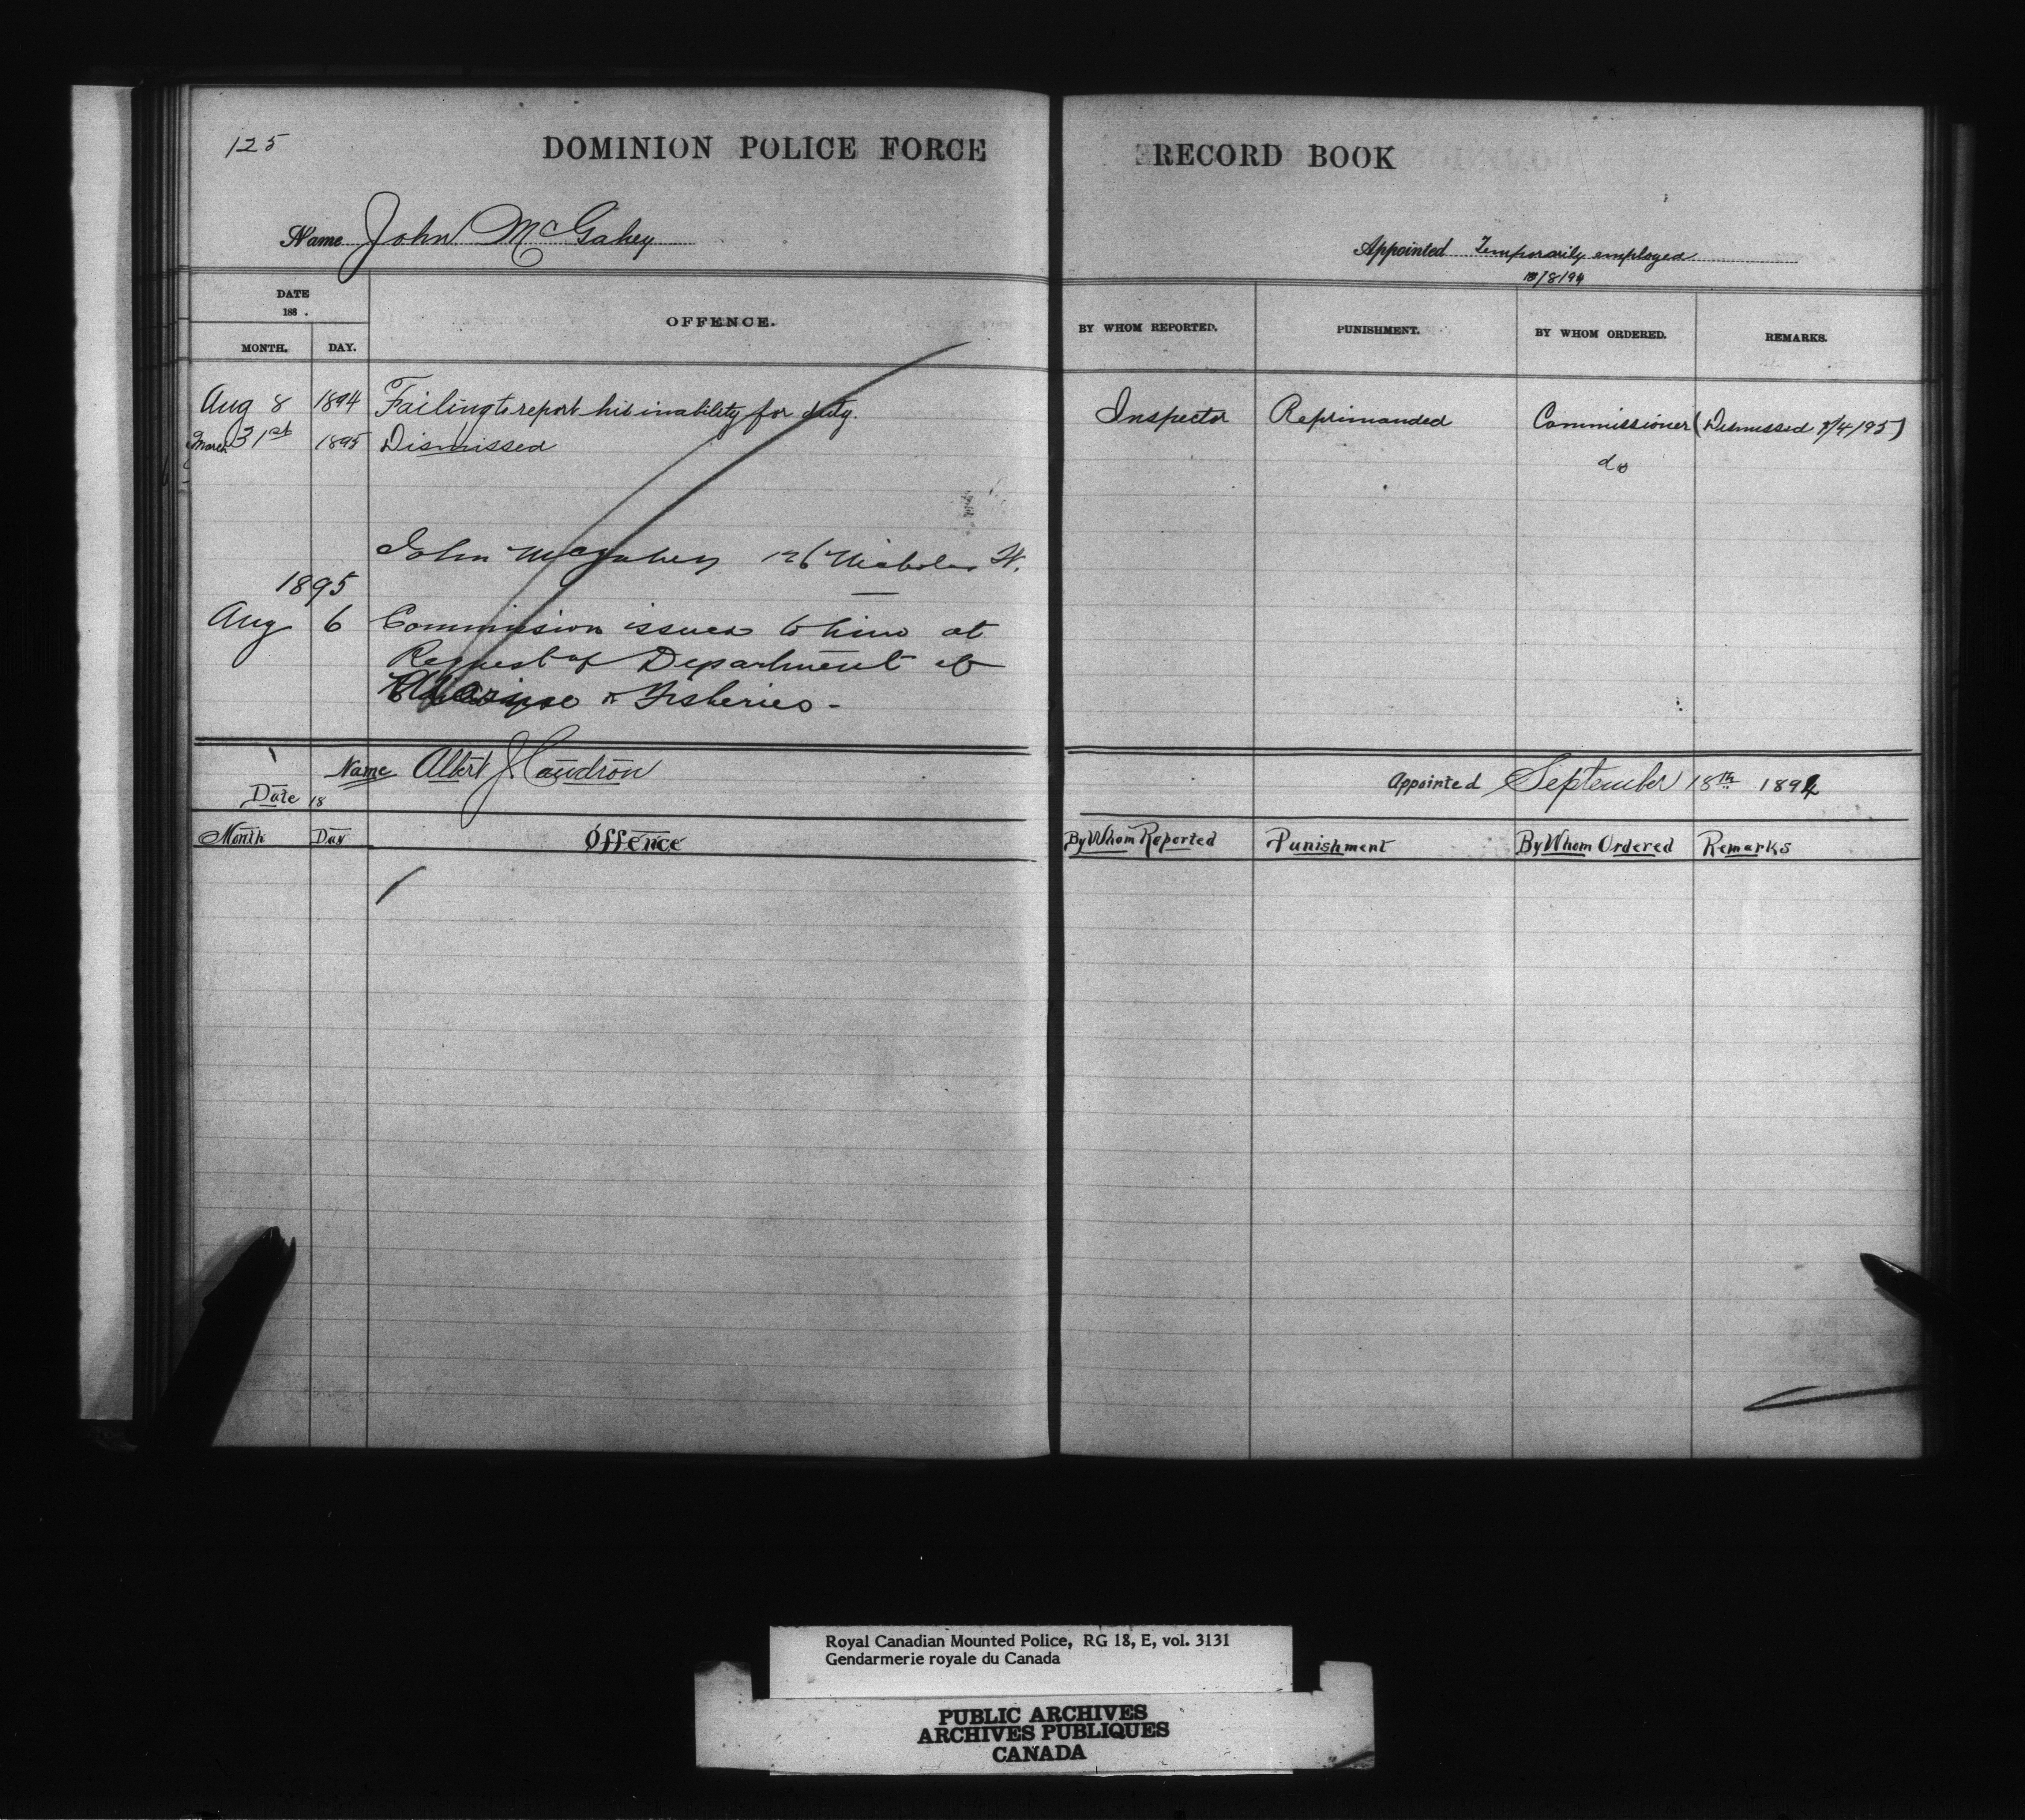 125
DOMINION POLICE FORCE RECORD BOOK
Name John McGahey
Appointed Temporarily employed
/8/94
DATE
188 .
MONTH. DAY. OFFENCE. BY WHOM REPORTED. PUNISHMENT. BY WHOM ORDERED. REMARKS.
Aug 8 1894 Failing to report his inability for duty. Inspector Reprimanded Commissioner (Dismissed /4/95)
March 31st 1895 Dismissed do
John McGahey 126 Nicholas St.
1895
Aug 6 Commission issued to him at
Request of Department of
Marine & Fisheries -
Name Albert J Caudron Appointed September 18th 1894
Date 18
Month Day Offence By Whom Reported Punishment By Whom Ordered Remarks
Royal Canadian Mounted Police, RG 18, E, vol. 3131
Gendarmerie royale du Canada
PUBLIC ARCHIVES
ARCHIVES PUBLIQUES
CANADA